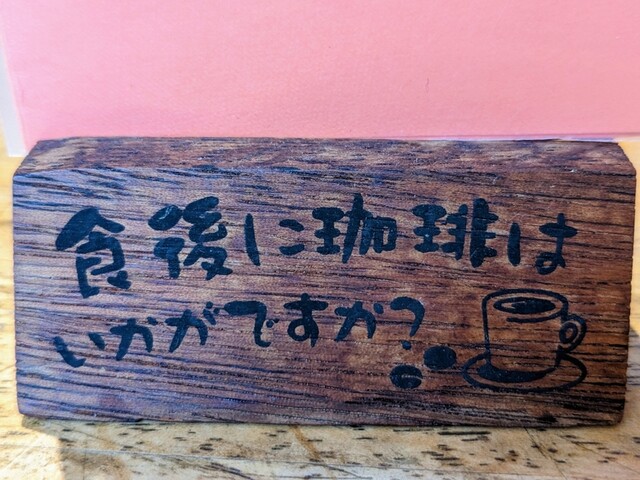 食後に珈琲は
いかがですか?